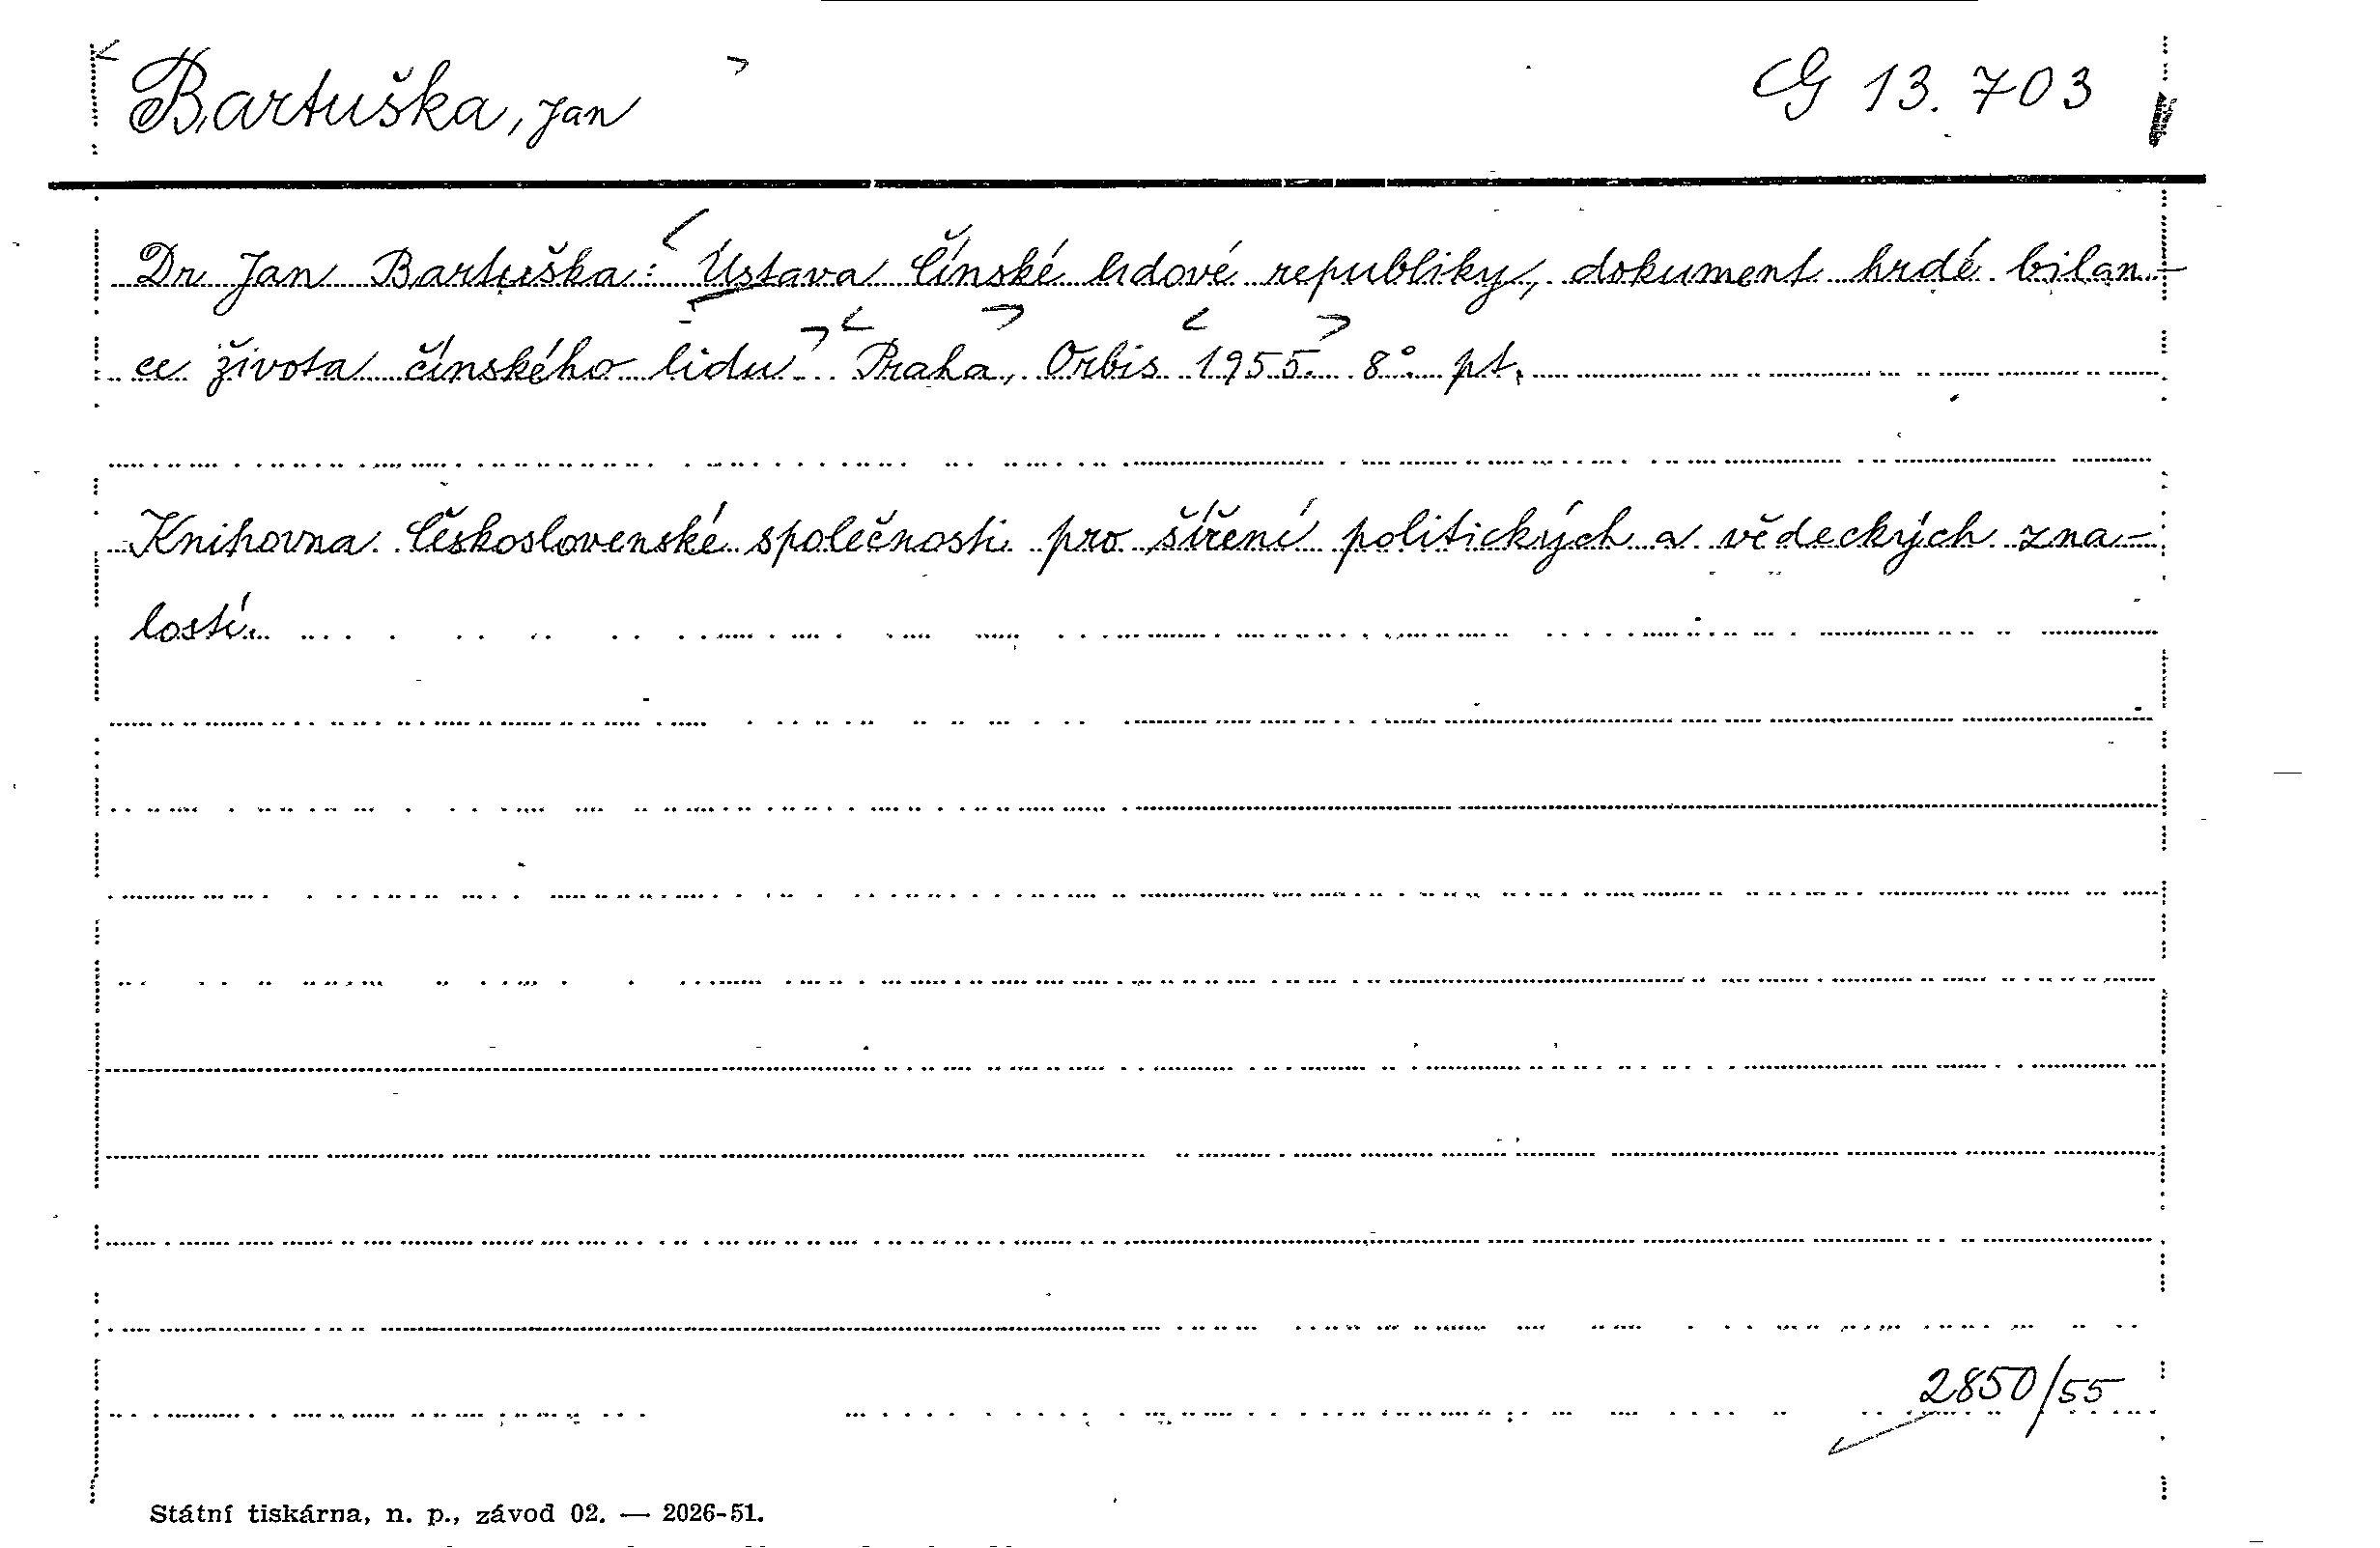 Bartuška, Jan G 13.703
Dr Jan Bartuška: Ústava Čínské lidové republiky, dokument hrdé bilan-
ce života čínského lidu. Praha, Orbis 1955. 8°. pt.
Knihovna Československé společnosti pro šíření politických a vědeckých zna-
lostí.
2850/55
Státní tiskárna, n. p., závod 02. — 2026-51.